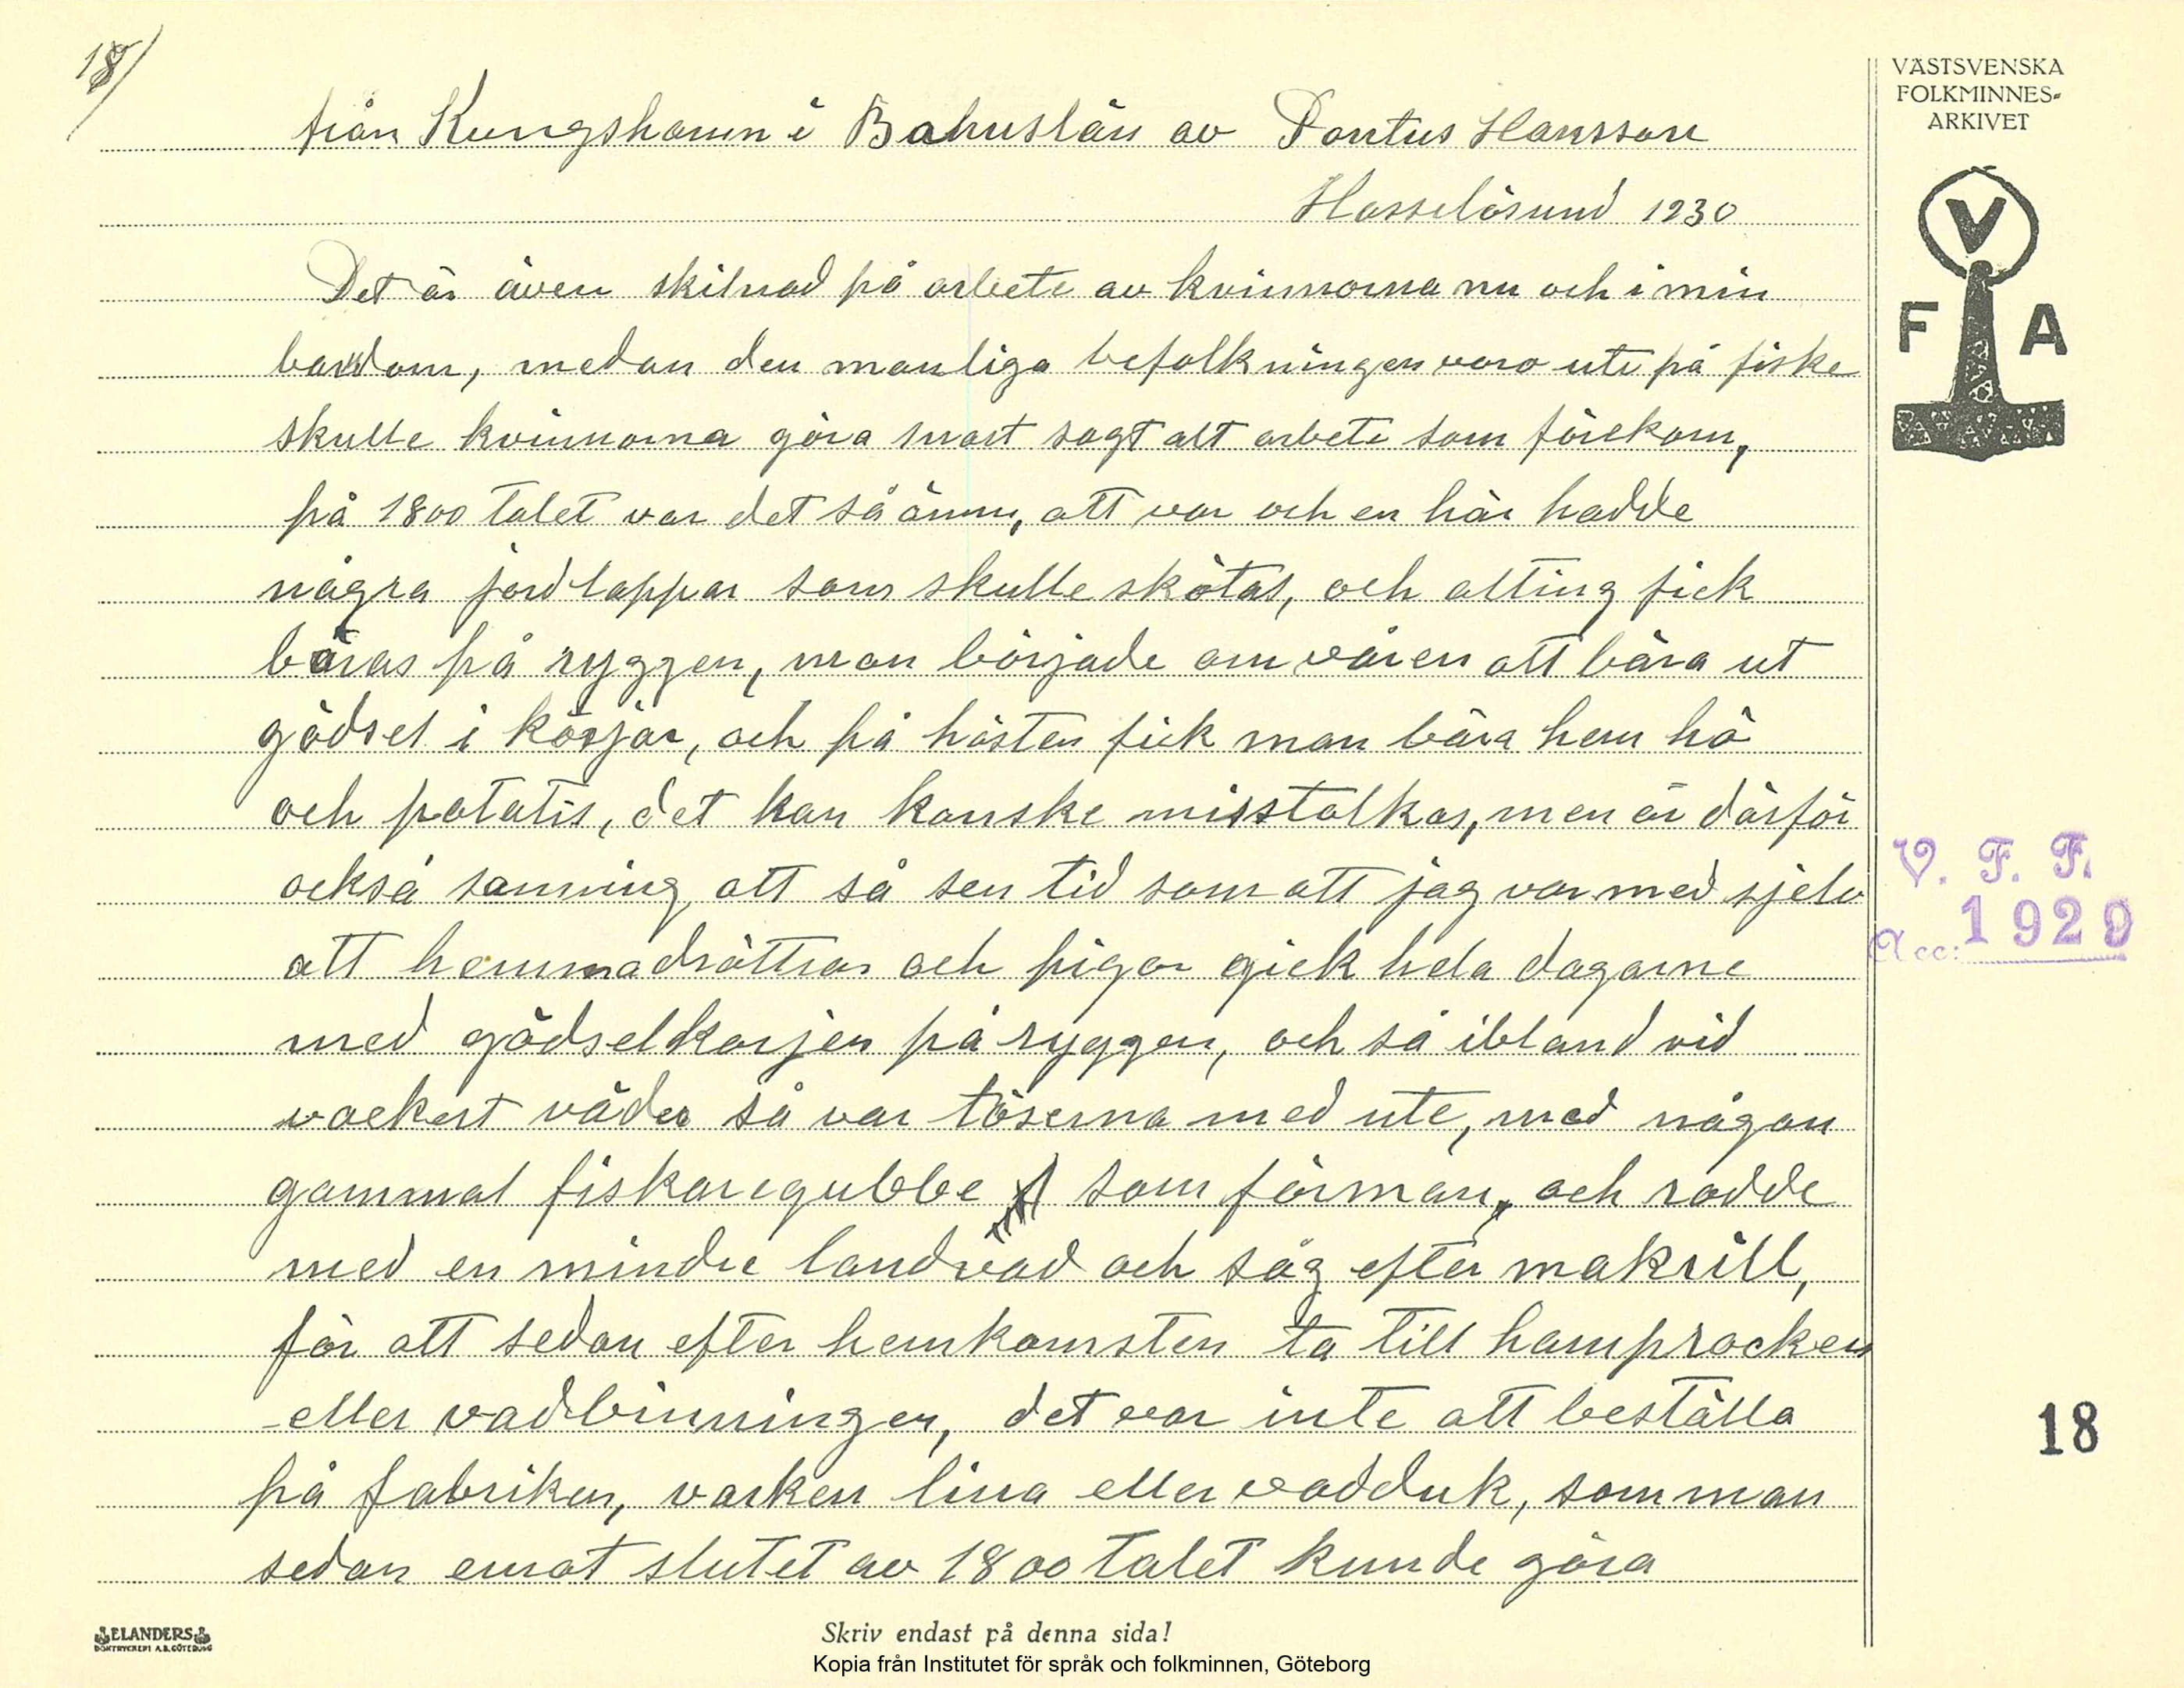 18/
från Kungshamn i Bohuslän av Pontus Hansson
Hasselösund 1930
Det är även skilnad på arbete av kvinnorna nu och i min
barndom, medan den manliga befolkningen voro ute på fiske
skulle kvinnorna göra snart sagt alt arbete som förekom,
på 1800 talet var det så ännu, att var och en här hadde
några jordlappar som skulle skötas, och alting fick
bäras på ryggen, man började om våren att bära ut
gödsel i körjar, och på hösten fick man bära hem hö
och potatis, det kan kanske misstolkas, men är därför
också sanning att så sen tid som att jag var med sjelv
att hemmadöttrar och pigor gick hela dagarne
med gödselkorjen på ryggen, och så ibland vid
vackert väder så var töserna med ute, med någon
gammal fiskaregubbe som förman, och rodde
med en mindre landvad och såg efter makrill,
för att sedan efter hemkomsten ta till hamprocken
eller vadbinningen, det var inte att beställa
på fabriken, varken lina eller vadduk, som man
sedan emot slutet av 1800 talet kunde göra
VÄSTSVENSKA
FOLKMINNES-
ARKIVET
V
F A
V. F. F.
Acc: 1929
18
ELANDERS
BOKTRYCKERI A.B. GÖTEBORG
Skriv endast på denna sida!
Kopia från Institutet för språk och folkminnen, Göteborg